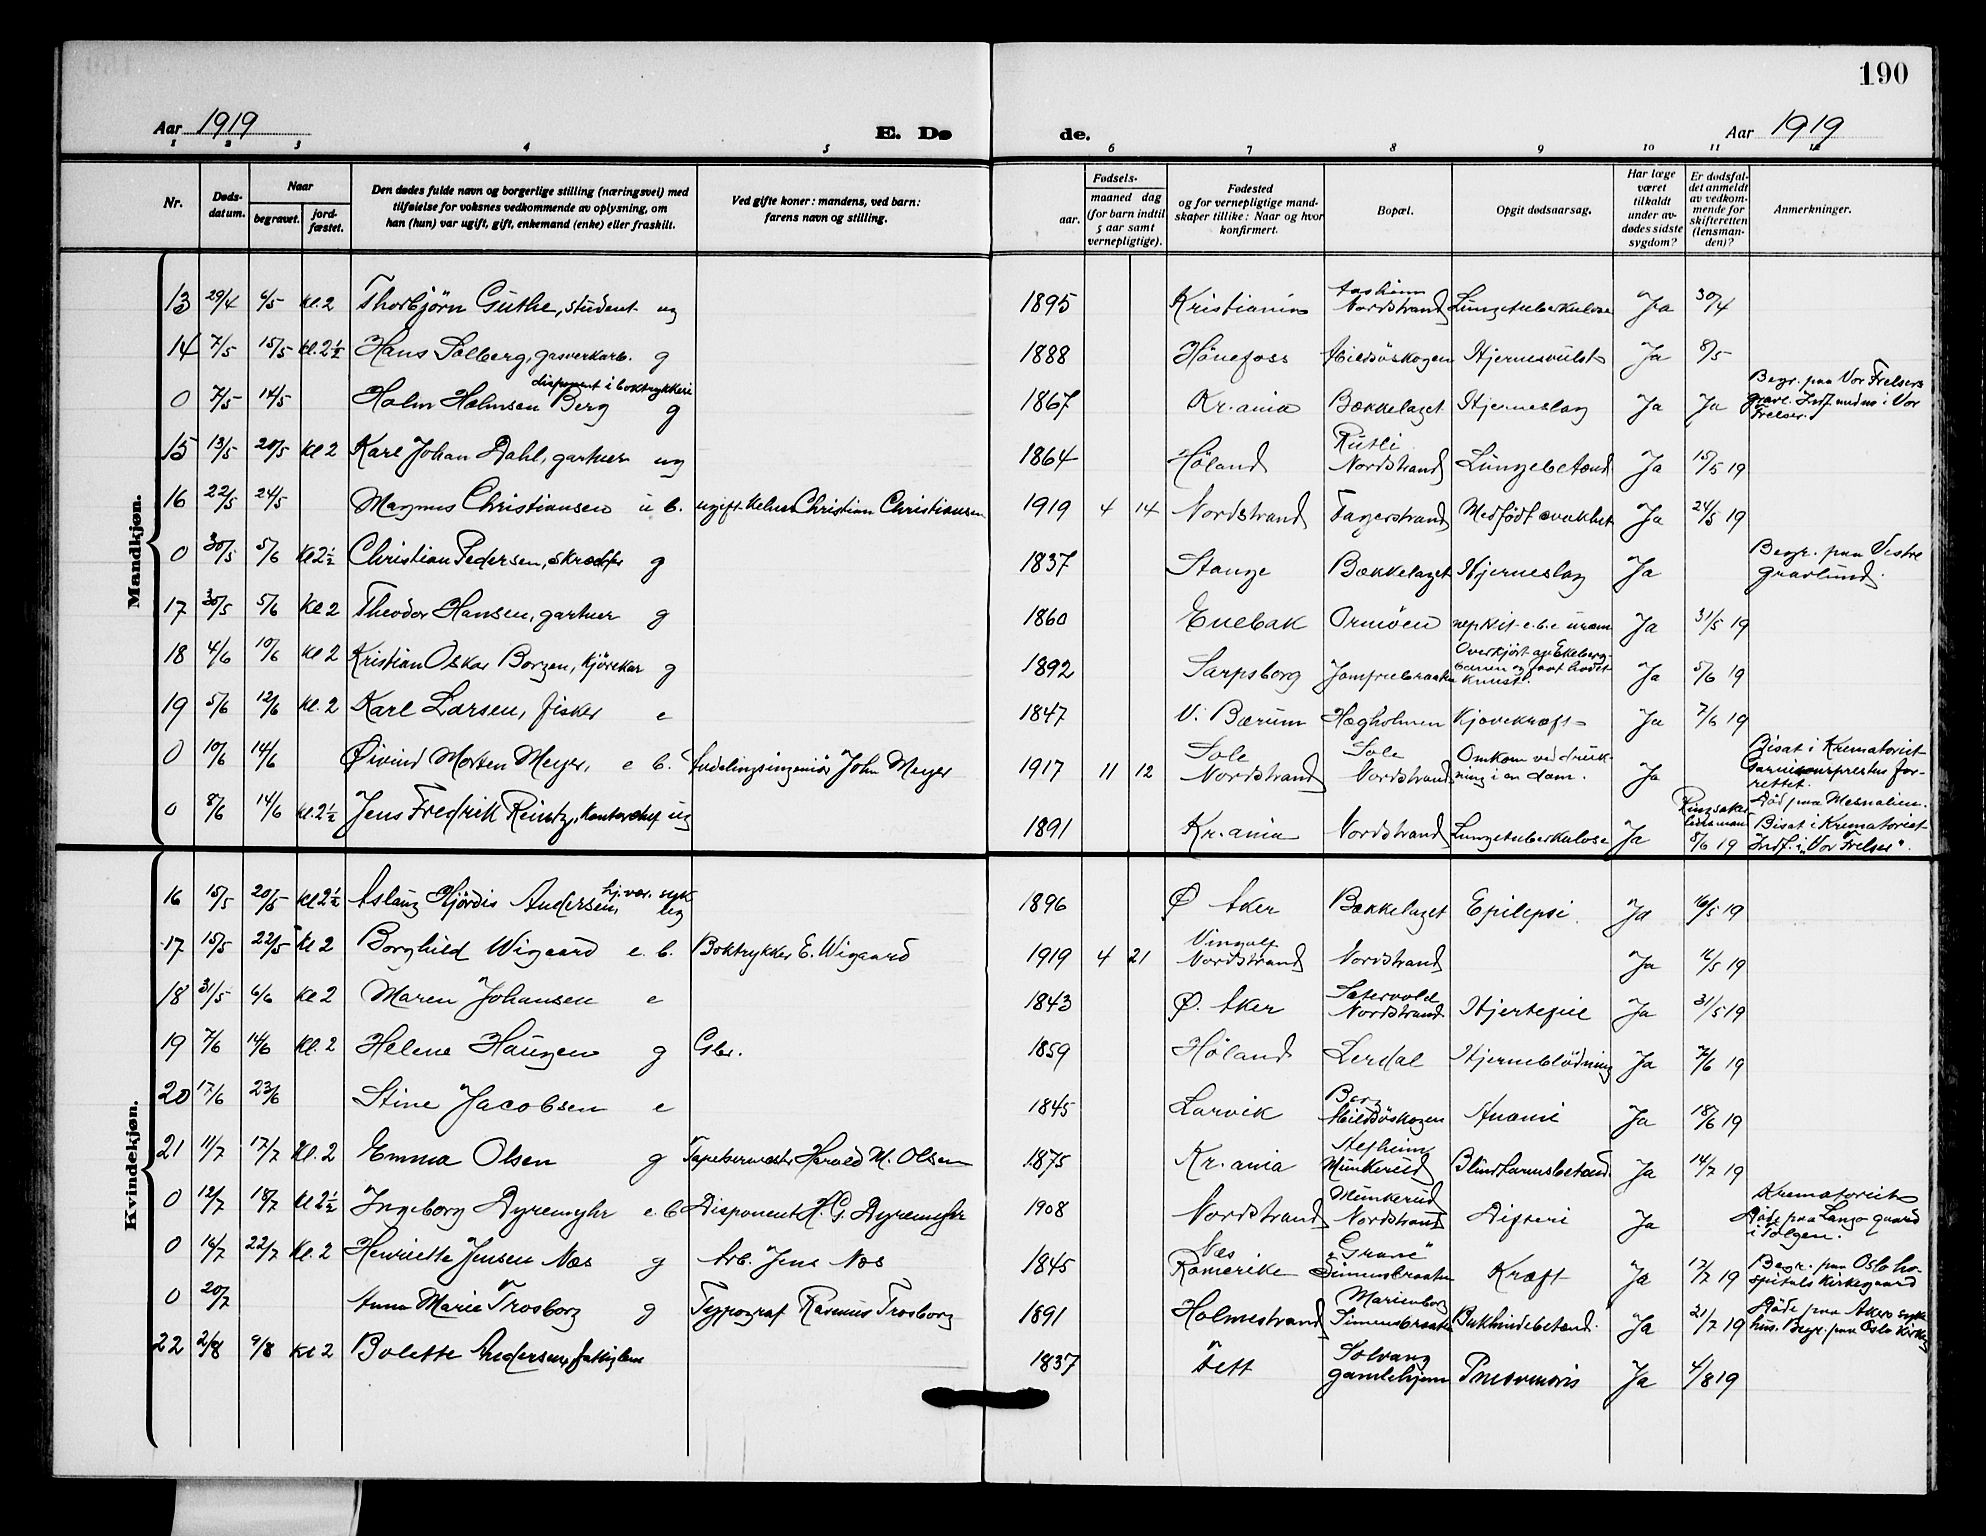 190
Aar 1919 E. Dø de. Aar 1919
1 2 3 4 5 6 7 8 9 10 11 12
Nr. Døds-datum. Naar begravet. jord-fæstet. Den dødes fulde navn og borgerlige stilling (næringsvei) med tilføielse for voksnes vedkommende av oplysning, om han (hun) var ugift, gift, enkemand (enke) eller fraskilt. Ved gifte koner: mandens, ved barn: farens navn og stilling. Fødsels- aar. maaned dag (for barn indtil 5 aar samt vernepligtige). Fødested og for vernepligtige mand-skaper tillike: Naar og hvor konfirmert. Bopæl. Opgit dødsaarsag. Har læge været tilkaldt under av-dødes sidste sygdom? Er dødsfal-det anmeldt av vedkom-mende for skifteretten (lensman-den)? Anmerkninger.
Mandkjøn.
13 29/4 4/5 Kl. 2 Thorbjörn Guthe, student ug 1895 Kristiania Nordstrand Lungetuberkulose Ja 30/4
14 7/5 15/5 Kl. 2½ Hans Solberg, gasverkarb. g 1888 Hönefoss Abildsöskogen Hjernesvulst Ja 8/5
0 7/5 14/5 Holm Holmsen Berg disponent i boktrykkeri g 1867 Kr.ania Bækkelaget Hjerneslag Ja Ja Begr. paa Vor Frelsers gravl. Indf. i Vor Frelser.
15 13/5 20/5 Kl 2 Karl Johan Dahl, gartner ug 1864 Höland Rutli Nordstrand Lungebetænd Ja 15/5 19
16 22/5 24/5 Magnus Christiansen u b. ugift Kelner Christian Christiansen 1919 4 14 Nordstrand Fagerstrand Medfödt svakhet Ja 24/5 19
0 30/5 5/6 Kl 2½ Christian Pedersen, skrædder g 1837 Stange Bækkelaget Hjerneslag Ja Begr. paa Vestre gravlund.
17 30/5 5/6 Kl 2 Theodor Hansen, gartner g 1860 Enebak Ormöen Ja 31/5 19
18 4/6 10/6 Kl 2 Kristian Oskar Borgen, Kjörekar g 1892 Sarpsborg Jomfrubraaten Overkjört av Ekeberg-banen og faat hodet knust. Ja 5/6 19
19 5/6 12/6 Kl. 2 Karl Larsen, fisker e 1847 V. Bærum Hægholmen Kjævekræft Ja 7/6 19
0 10/6 14/6 Øivind Morten Meyer, e b. Avdelingsingeniör John Meyer 1917 11 12 Sole Nordstrand Sole Nordstrand Omkom ved druk-ning i en dam. Ja Bisat i Krematoriet Garnisonspresten for-rettet.
0 8/6 14/6 Kl. 2½ Jens Fredrik Reintz, Kontorchef ug 1891 Kr.ania Nordstrand Lungetuberkulose Ja Ringsaker lensmand 8/6 19 Död paa Mesnalien. Bisat i Krematoriet Indf. i "Vor Frelser".
Kvindekjøn.
16 15/5 20/5 Kl 2½ Aslaug Hjördis Andersen, hj.vær. syk ug 1896 Ø Aker Bækkelaget Epilepsi. Ja 16/5 19
17 15/5 22/5 Kl 2 Borghild Wigaard e. b. Boktrykker E. Wigaard 1919 4 21 Vingolf Nordstrand Nordstrand Ja 16/5 19
18 31/5 6/6 Kl 2 Maren Johansen e 1843 Ø. Aker Sætervold Nordstrand Hjertefeil Ja 31/5 19
19 7/6 14/6 Kl. 2 Helene Haugen g Gbr. 1859 Höland Lerdal Hjerneblödning Ja 7/6 19
20 17/6 23/6 Stine Jacobsen e 1845 Larvik Berg Abildsöskogen Anæmi Ja 18/6 19
21 11/7 17/7 Kl. 2 Emma Olsen g Tapetsermester Harald M. Olsen 1875 Kr.ania Munkerud Blindtarmsbetænd. Ja 14/7 19
0 12/7 18/7 Kl 2½ Ingeborg Dyremyhr e. b Disponent H. G. Dyremyhr 1908 Nordstrand Munkerud Nordstrand Difteri Ja Krematoriet Döde paa Langø gaard i Tolgen.
0 16/7 22/7 Kl. 2 Henriette Jensen Næs g Arb. Jens Næs 1845 Næs Romerike "Grane" Simensbraaten Kræft Ja 17/7 19 Begr. paa Oslo ho-spitals Kirkegaard
0 20/7 Anna Marie Trosborg g Typograf Rasmus Trosborg 1891 Holmestrand Marienborg Simensbraaten Bukhindebetænd. Ja 21/7 19 Döde paa Akers syke hus. Begr. paa Oslo Kirkeg.
22 2/8 9/8 Kl 2 Bolette Andersen, fattiglem 1837 Fett Solvang gamlehjem Pneumoni Ja 4/8 19